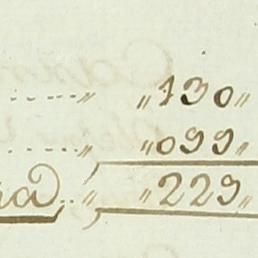 ....„ „130„
....„ „099„
ra..„ „229„